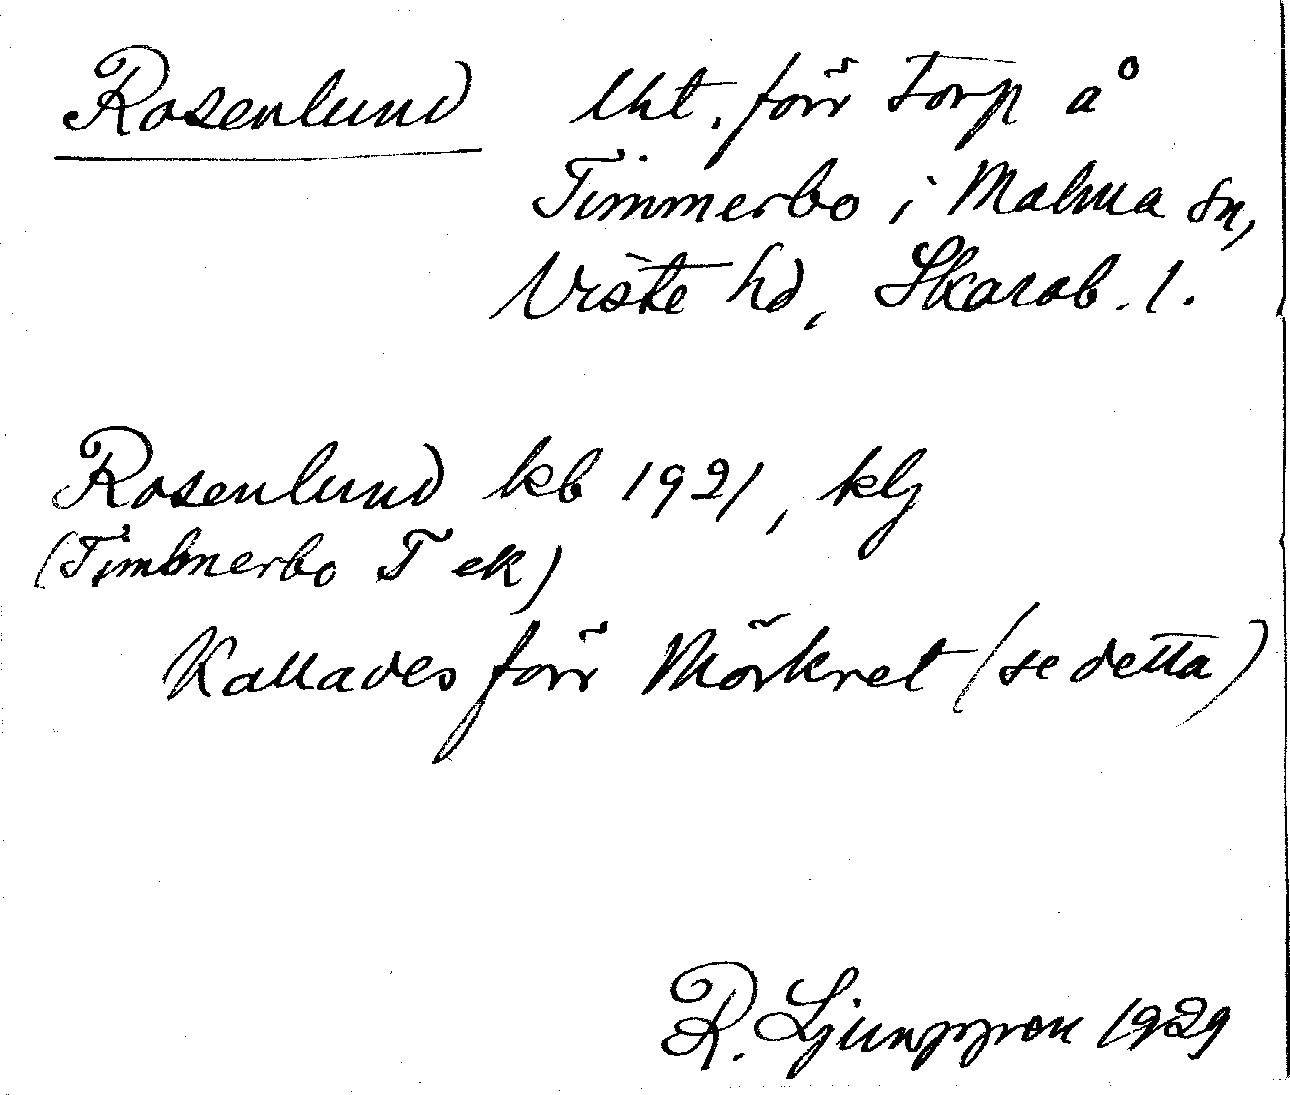 Rosenlund lht. förr Torp å
Timmerbo i Malma sn,
Viste hd, Skarab. l.
Rosenlund kb 1921, klj
(Timmerbo T ek)
Kallades förr Mörkret (se detta)
R. Ljunggren 1929